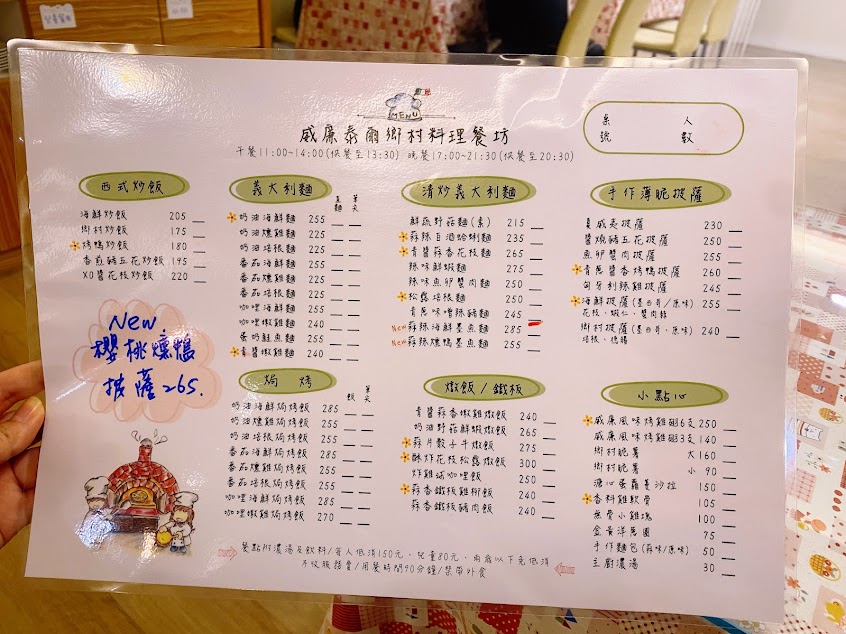 MENU
威廉泰爾鄉村料理餐坊
午餐11:00~14:00(供餐至13:30) 晚餐17:00~21:30(供餐至20:30)
桌 人
號 數
西式炒飯
海鮮炒飯 205
鄉村炒飯 175
烤鴨炒飯 180
香煎豬五花炒飯 195
XO醬花枝炒飯 220
New
櫻桃燻鴨
披薩265.
義大利麵
直麵 筆尖
奶油海鮮麵 255
奶油燻雞麵 225
奶油培根麵 225
番茄海鮮麵 255
番茄燻雞麵 225
番茄培根麵 225
咖哩海鮮麵 255
咖哩嫩雞麵 240
蛋奶鮭魚麵 255
青醬嫩雞麵 240
焗 烤
飯 筆尖
奶油海鮮焗烤飯 285
奶油燻雞焗烤飯 255
奶油培根焗烤飯 255
番茄海鮮焗烤飯 285
番茄燻雞焗烤飯 255
番茄培根焗烤飯 255
咖哩海鮮焗烤飯 285
咖哩嫩雞焗烤飯 270
清炒義大利麵
鮮蔬野菇麵(素) 215
蒜辣白酒蛤蜊麵 235
青醬蒜香花枝麵 265
辣味鮮蝦麵 275
辣味魚卵蟹肉麵 250
松露培根麵 250
青蔥味噌雞豬麵 245
New 蒜辣海鮮墨魚麵 285
New 蒜辣燻鴨墨魚麵 255
燉飯/鐵板
青醬蒜香嫩雞燉飯 240
奶油野菇鮮蝦燉飯 265
蒜片骰子牛燉飯 275
酥炸花枝松露燉飯 300
炸雞球咖哩飯 250
蒜香鐵板雞柳飯 240
蒜香鐵板豬肉飯 240
手作薄脆披薩
夏威夷披薩 230
醬燒豬五花披薩 250
魚卵蟹肉披薩 255
青蔥醬香烤鴨披薩 260
匈牙利辣雞披薩 245
海鮮披薩(墨西哥/原味) 255
花枝、蝦仁、蟹肉絲
鄉村披薩(墨西哥、原味) 240
培根、德腸
小點心
威廉風味烤雞翅6支 250
威廉風味烤雞翅3支 140
鄉村脆薯 大160
鄉村脆薯 小 90
溏心蛋蘿蔓沙拉 150
香料雞軟骨 105
無骨小雞塊 100
金黃洋蔥圈 75
手作麵包(蒜味/原味) 50
主廚濃湯 30
餐點附濃湯及飲料/每人低消150元、兒童80元、兩歲以下免低消
不收服務費/用餐時間90分鐘/禁帶外食